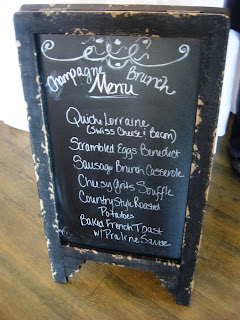 Champagne Brunch
Menu
Quiche Lorraine
(Swiss Cheese & Bacon)
Scrambled Eggs Benedict
Sausage Brunch Casserole
Cheesy Grits Souffle
Country Style Roasted
Potatoes
Baked French Toast
w/ Praline Sauce